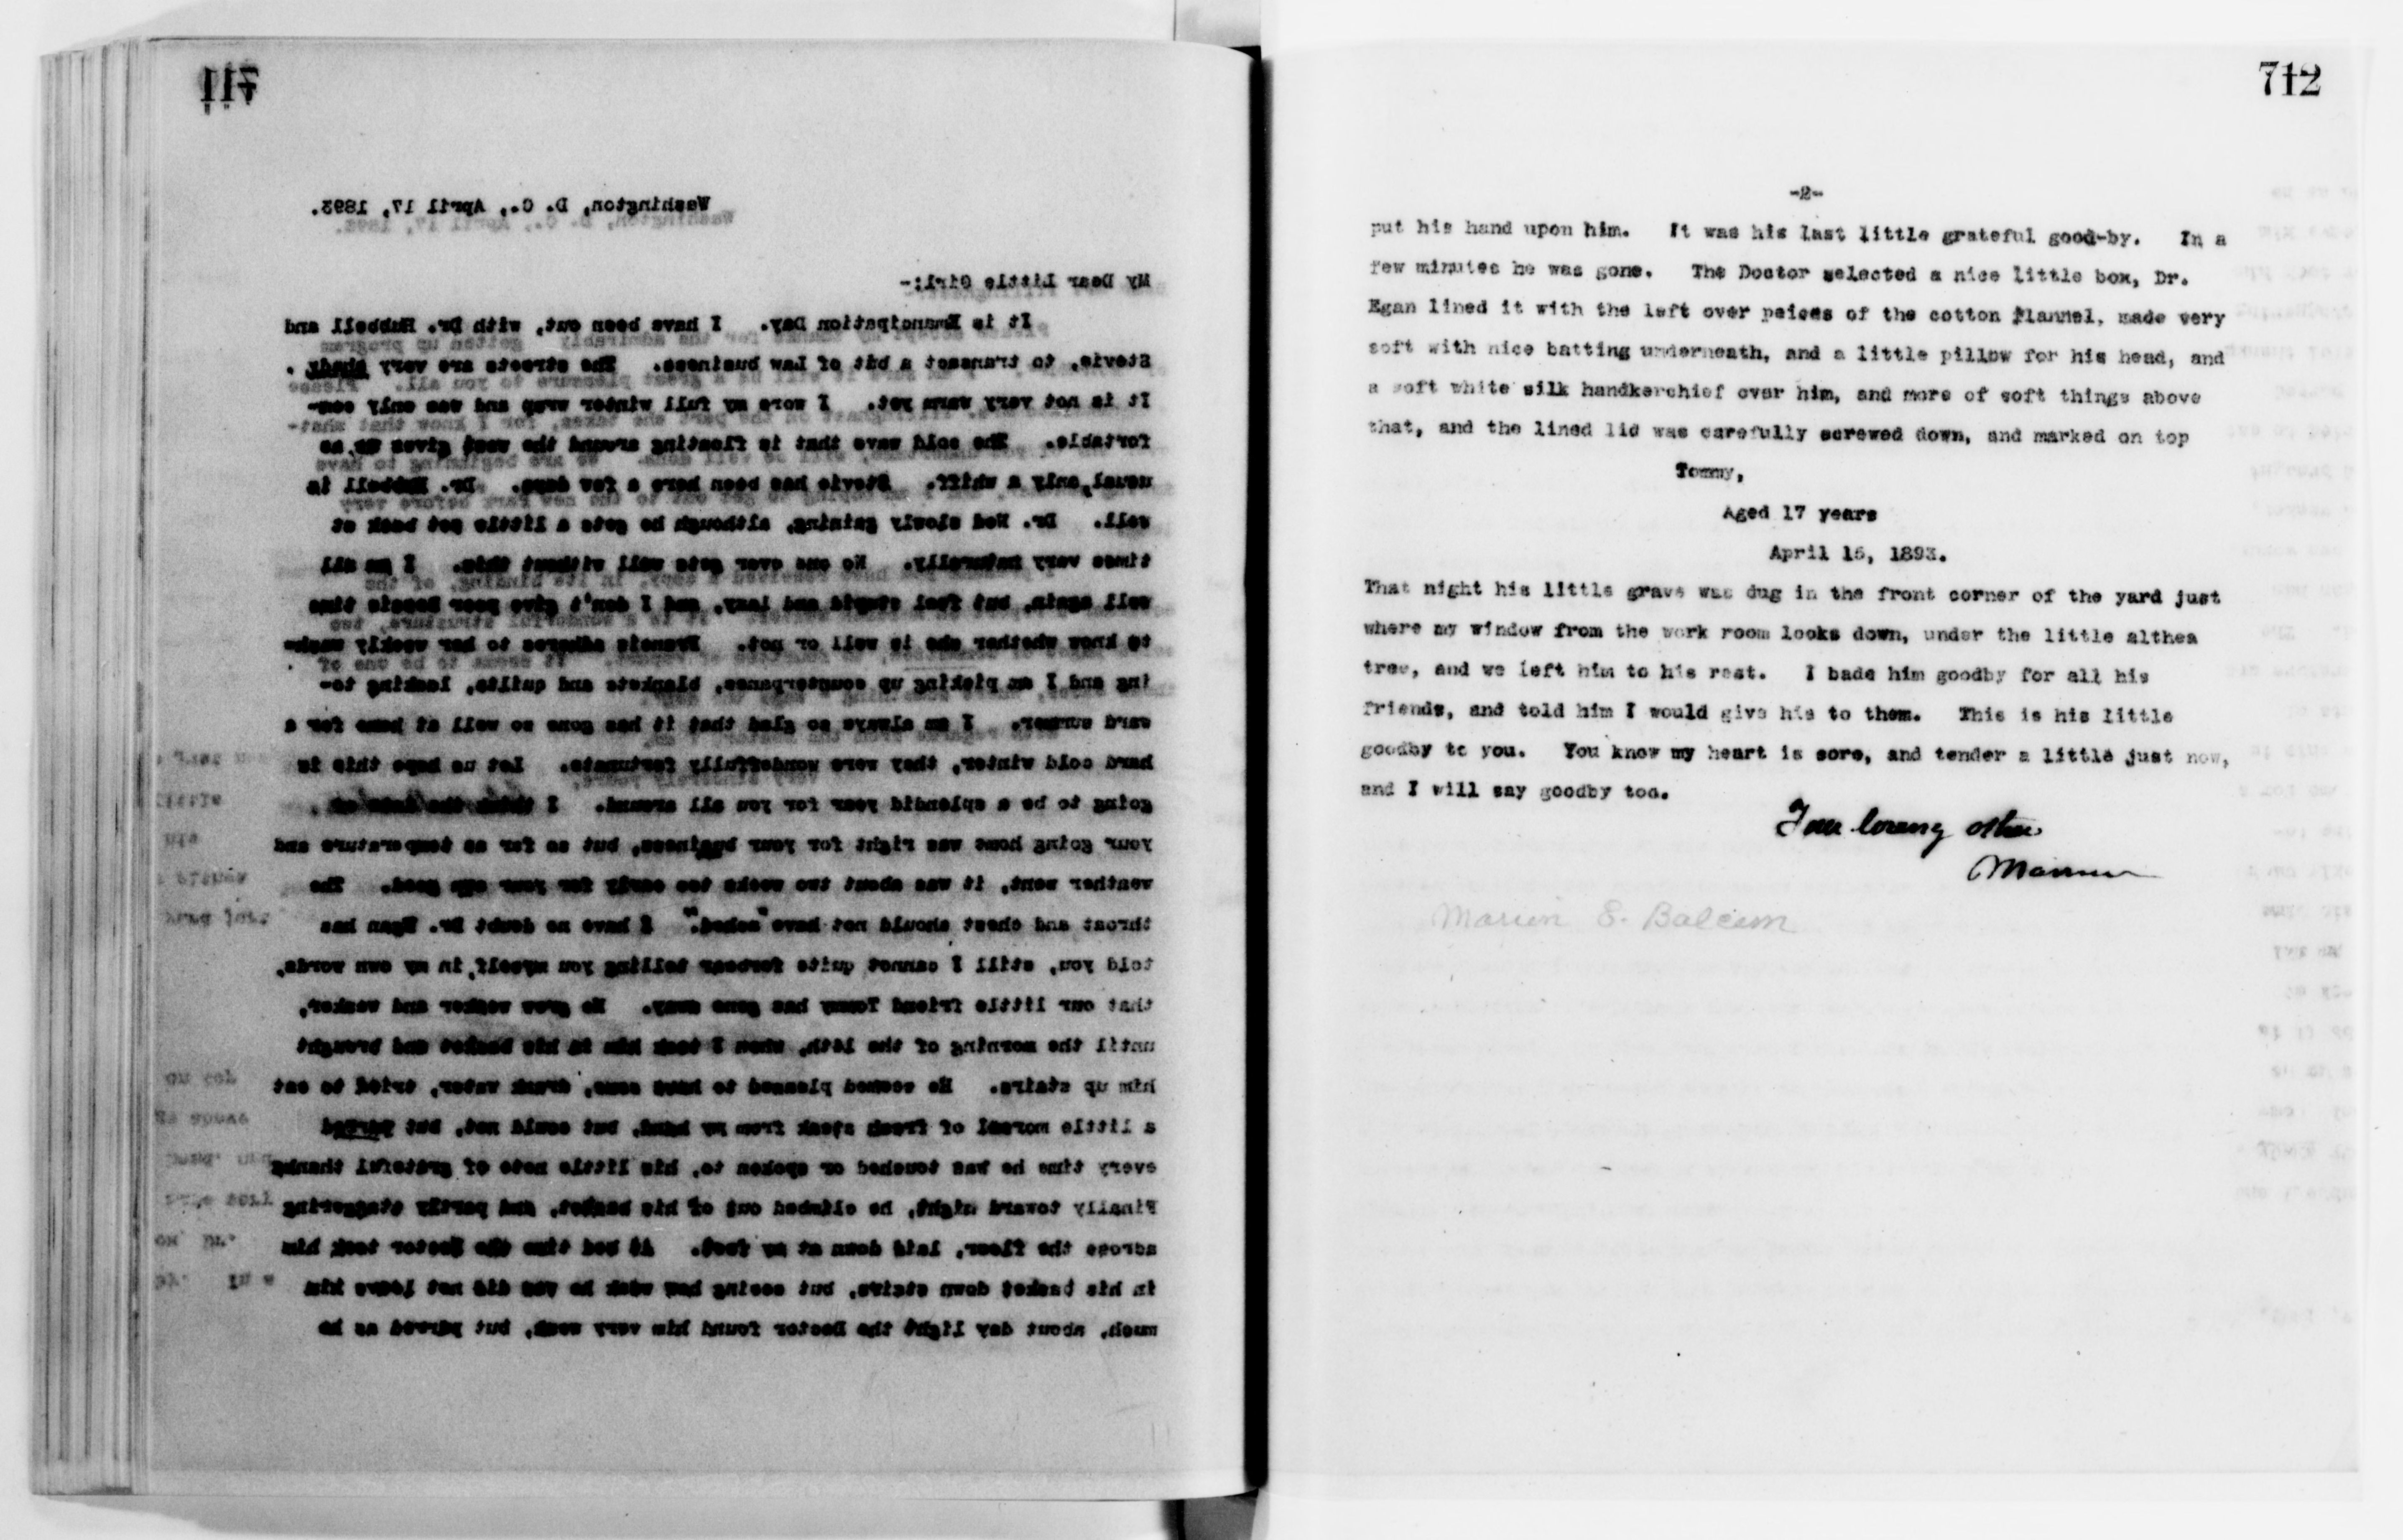 711
Washington, D. C., April 17, 1893.
My Dear Little Girl:-
It is Emancipation Day. I have been out, with Dr. Hubbell and
Stevie, to transact a bit of Law business. The streets are very shady.
It is not very warm yet. I wore my full winter wrap and was only com-
fortable. The cold wave that is floating around the west gives us, as
usual, only a whiff. Stevie has been here a few days. Dr. Hubbell is
well. Dr. Ned slowly gaining, although he gets a little set back at
times very naturally. No one ever gets well without this. I am all
well again, but feel stupid and lazy, and I don't give poor Bessie time
to know whether she is well or not. Francis adheres to her weekly wash-
ing and I am picking up counterpanes, blankets and quilts, looking to-
ward summer. I am always so glad that it has gone so well at home for a
hard cold winter, they were wonderfully fortunate. Let us hope this is
going to be a splendid year for you all around. I think the date of
your going home was right for your business, but so far as temperature and
weather went, it was about two weeks too early for your own good. The
throat and chest should not have "ached." I have no doubt Dr. Egan has
told you, still I cannot quite forbear telling you myself, in my own words,
that our little friend Tommy has gone away. He grew weaker and weaker,
until the morning of the 14th, when I took him in his basket and brought
him up stairs. He seemed pleased to have come, drank water, tried to eat
a little morsel of fresh steak from my hand, but could not, but purred
every time he was touched or spoken to, his little note of grateful thanks
Finally toward night, he climbed out of his basket, and partly staggering
across the floor, laid down at my feet. At bed time the Doctor took him
in his basket down stairs, but seeing how weak he was did not leave him
much, about day light the Doctor found him very weak, but purred as he
712
-2-
put his hand upon him. It was his last little grateful good-by. In a
few minutes he was gone. The Doctor selected a nice little box, Dr.
Egan lined it with the left over peices of the cotton flannel, made very
soft with nice batting underneath, and a little pillow for his head, and
a soft white silk handkerchief over him, and more of soft things above
that, and the lined lid was carefully screwed down, and marked on top
Tommy,
Aged 17 years
April 15, 1893.
That night his little grave was dug in the front corner of the yard just
where my window from the work room looks down, under the little althea
tree, and we left him to his rest. I bade him goodby for all his
friends, and told him I would give his to them. This is his little
goodby to you. You know my heart is sore, and tender a little just now,
and I will say goodby too.
Your loving
Marion E. Balcom